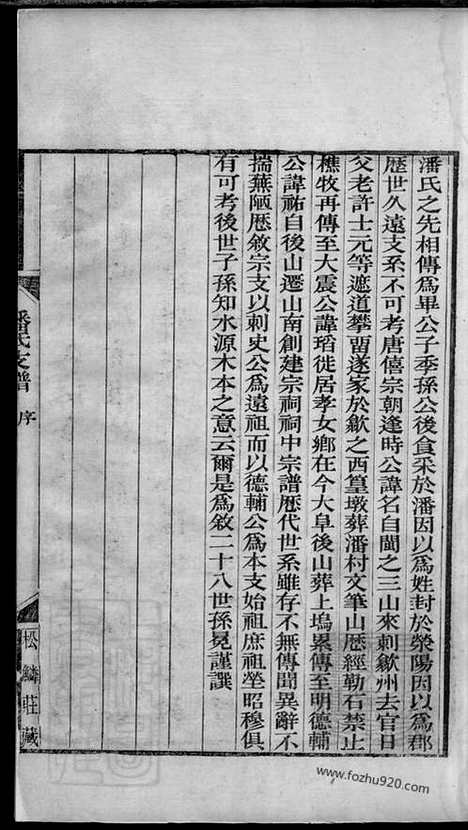 潘氏之先相傳爲畢公子季孫公後食采於潘因以爲姓封於滎陽因以爲郡
歷世久遠支系不可考唐僖宗朝逢時公諱名自閩之三山來刺歙州去官日
父老許士元等遮道攀畱遂家於歙之西篁墩葬潘村文筆山歷經勒石禁止
樵牧再傳至大震公諱瑫徙居孝女鄉在今大阜後山葬上塢累傳至明德輔
公諱祐自後山遷山南創建宗祠祠中宗譜歷代世系雖存不無傳聞異辭不
揣蕪陋歷敘宗支以刺史公爲遠祖而以德輔公爲本支始祖庶祖塋昭穆俱
有可考後世子孫知水源木本之意云爾是爲敘二十八世孫冕謹譔
潘氏支譜
序
松鱗莊藏
www.fozhu920.com